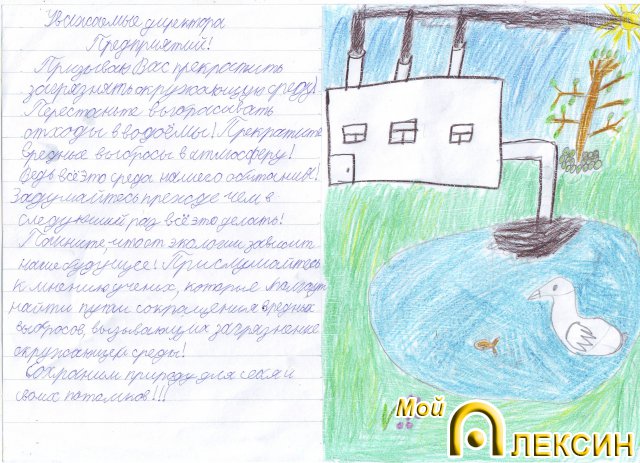 Уважаемые директора
Предприятий!
Призываю Вас прекратить
загрязнять окружающую среду!
Перестаньте выбрасывать
отходы в водоёмы! Прекратите
вредные выбросы в атмосферу!
Ведь всё это среда нашего обитания!
Задумайтесь прежде чем в
следующий раз всё это делать!
Помните, что от экологии зависит
наше будущее! Прислушайтесь
к мнению учёных, которые могут
найти пути сокращения вредных
выбросов, вызывающих загрязнение
окружающей среды!
Сохраним природу для себя и
своих потомков!!!
Мой
Алексин